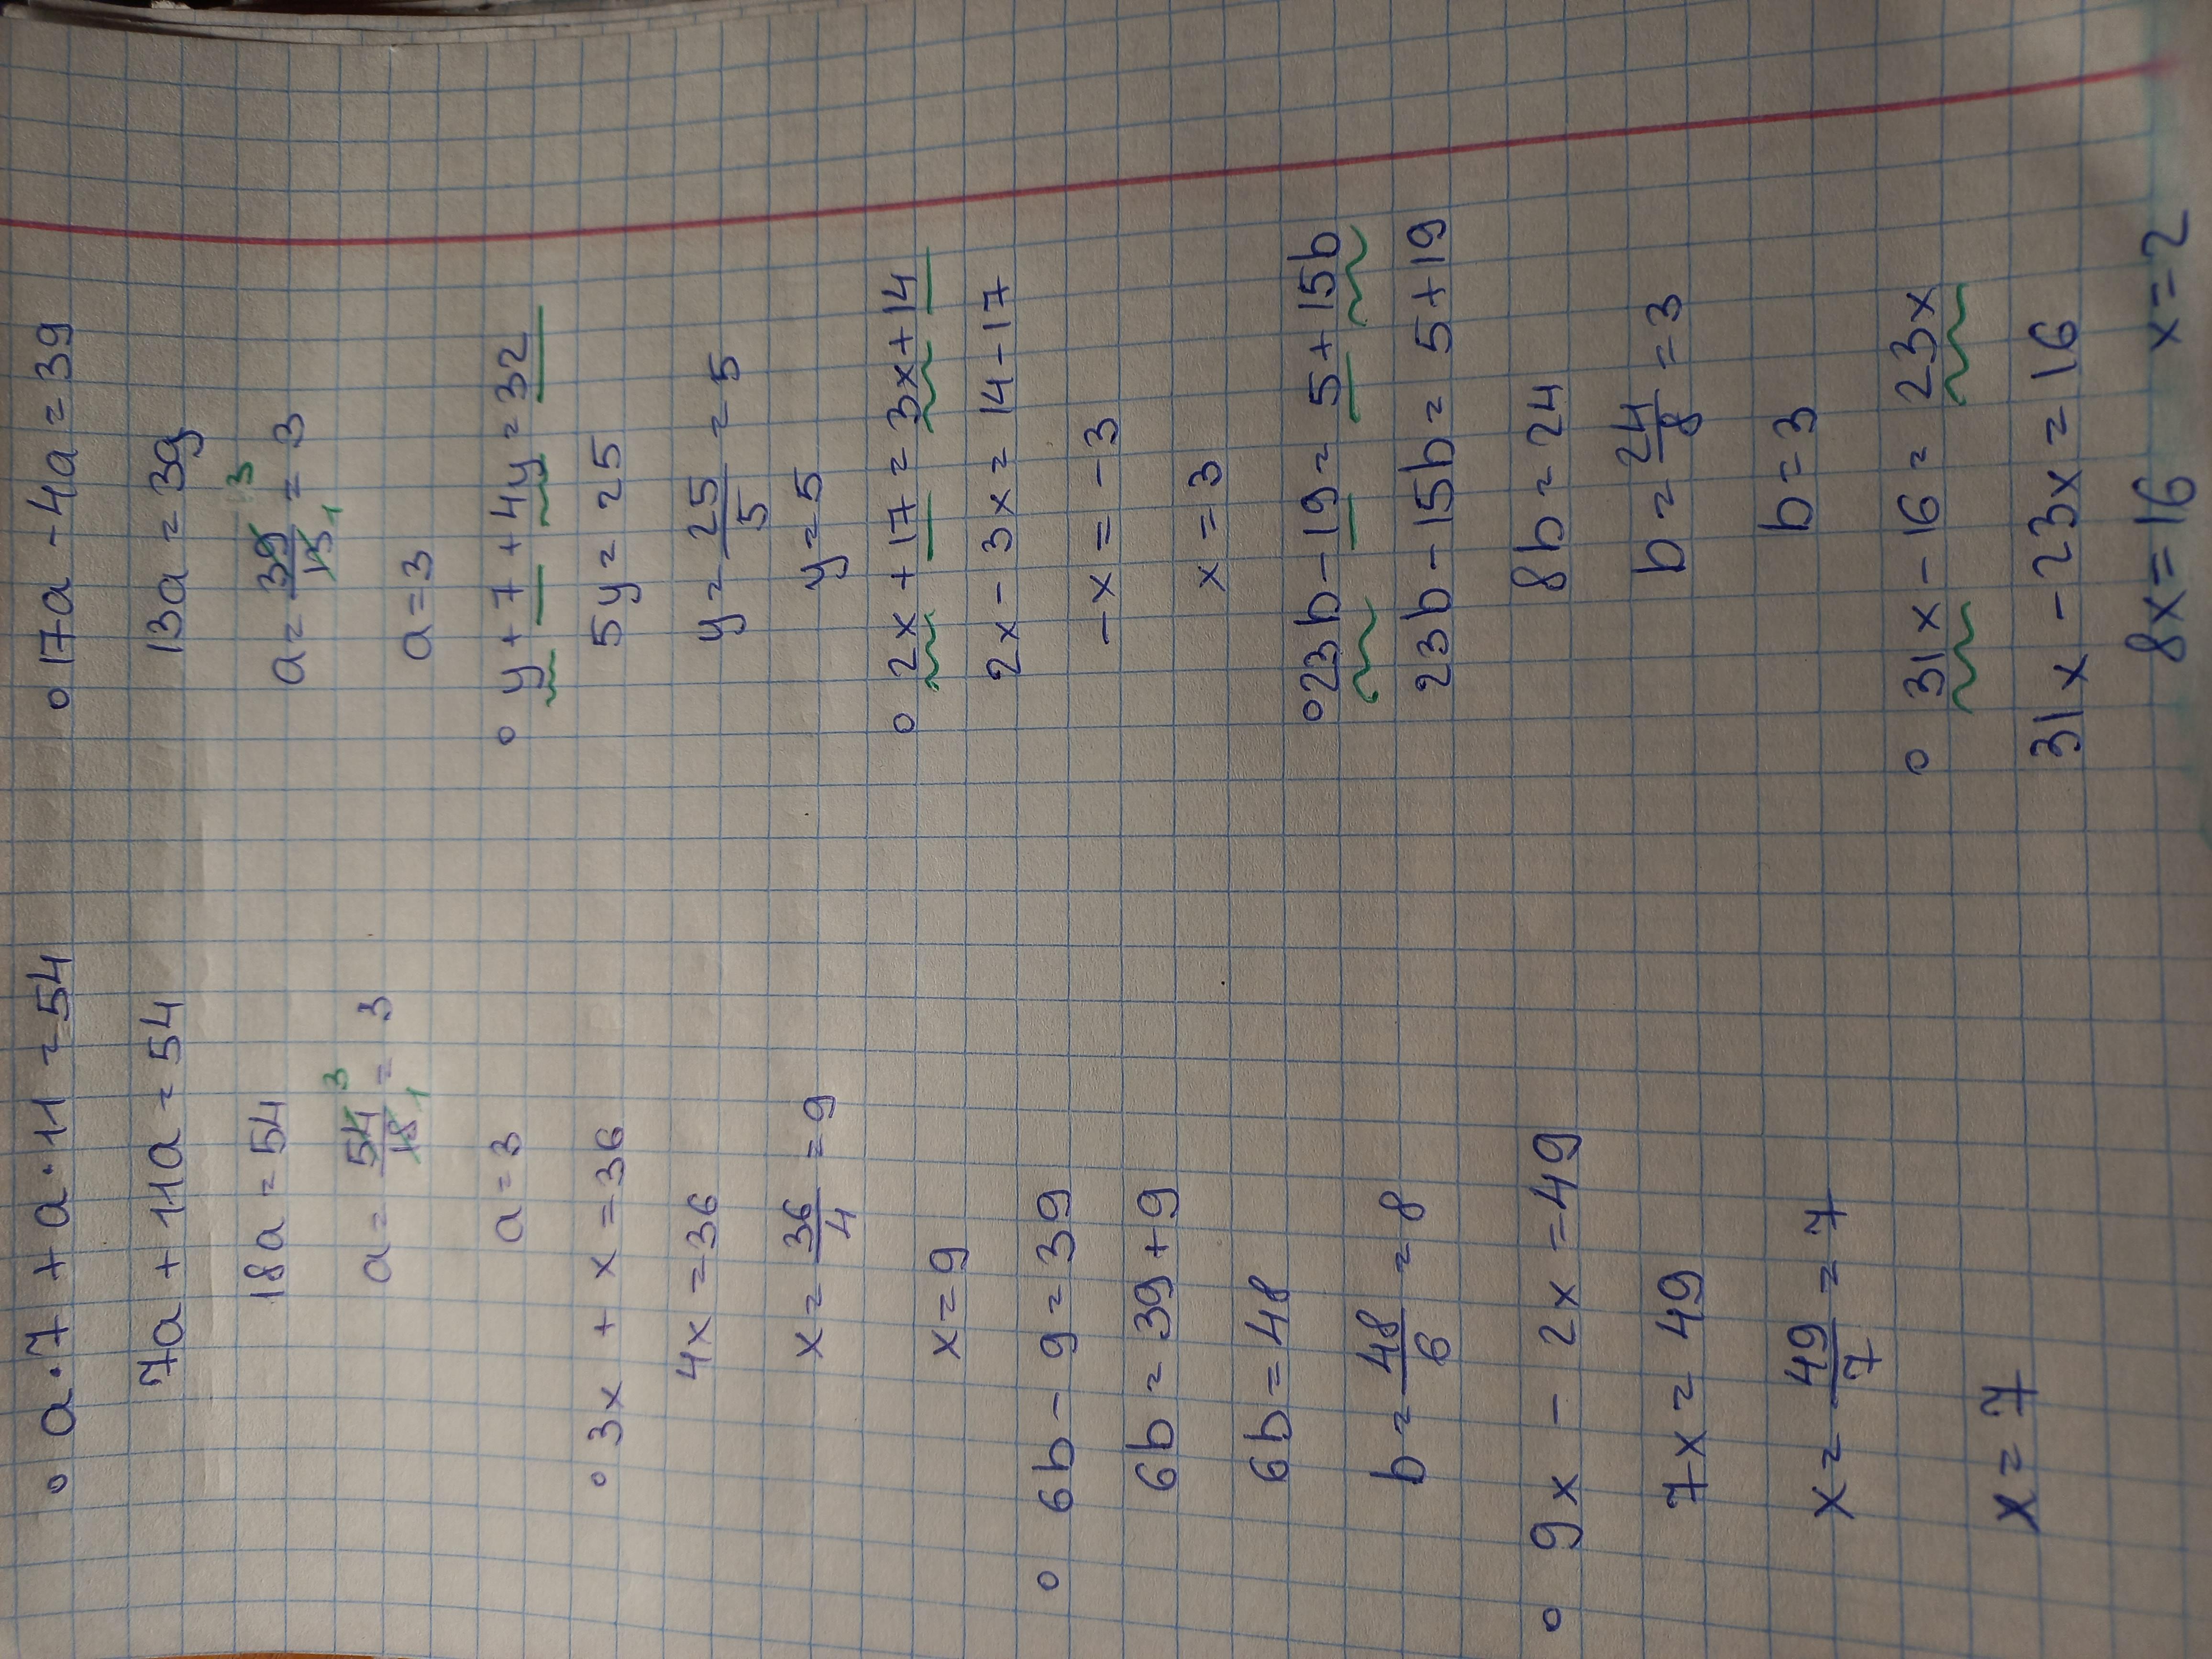 ∘ a·7 + a·11 = 54
7a + 11a = 54
18a = 54
a = 54/18 = 3
3
1
a = 3
∘ 3x + x = 36
4x = 36
x = 36/4 = 9
x = 9
∘ 6b - 9 = 39
6b = 39 + 9
6b = 48
b = 48/6 = 8
∘ 9x - 2x = 49
7x = 49
x = 49/7 = 7
x = 7
∘ 17a - 4a = 39
13a = 39
a = 39/13 = 3
3
1
a = 3
∘ y + 7 + 4y = 32
5y = 25
y = 25/5 = 5
y = 5
∘ 2x + 17 = 3x + 14
2x - 3x = 14 - 17
-x = -3
x = 3
∘ 23b - 19 = 5 + 15b
23b - 15b = 5 + 19
8b = 24
b = 24/8 = 3
b = 3
∘ 31x - 16 = 23x
31x - 23x = 16
8x = 16 x = 2